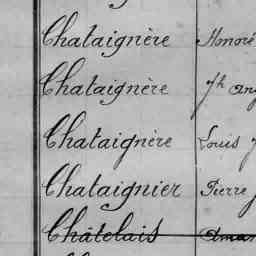 Chataignère Honoré
Chataignère Jh
Chataignère Louis
Chataignier Pierre
Châtelais